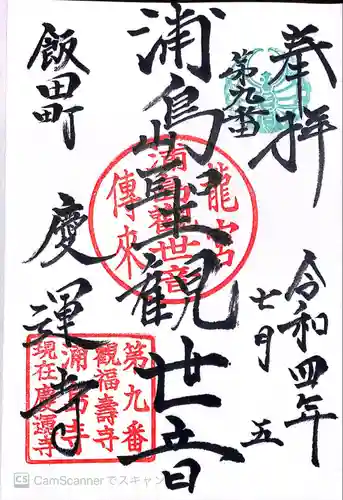 奉拝
第九番
令和四年
七月 五
浦島聖観世音
飯田町
慶運寺
龍宮
浦島觀世音
傳來
第九番
觀福壽寺
浦島寺
現在慶運寺
CS CamScannerでスキャン